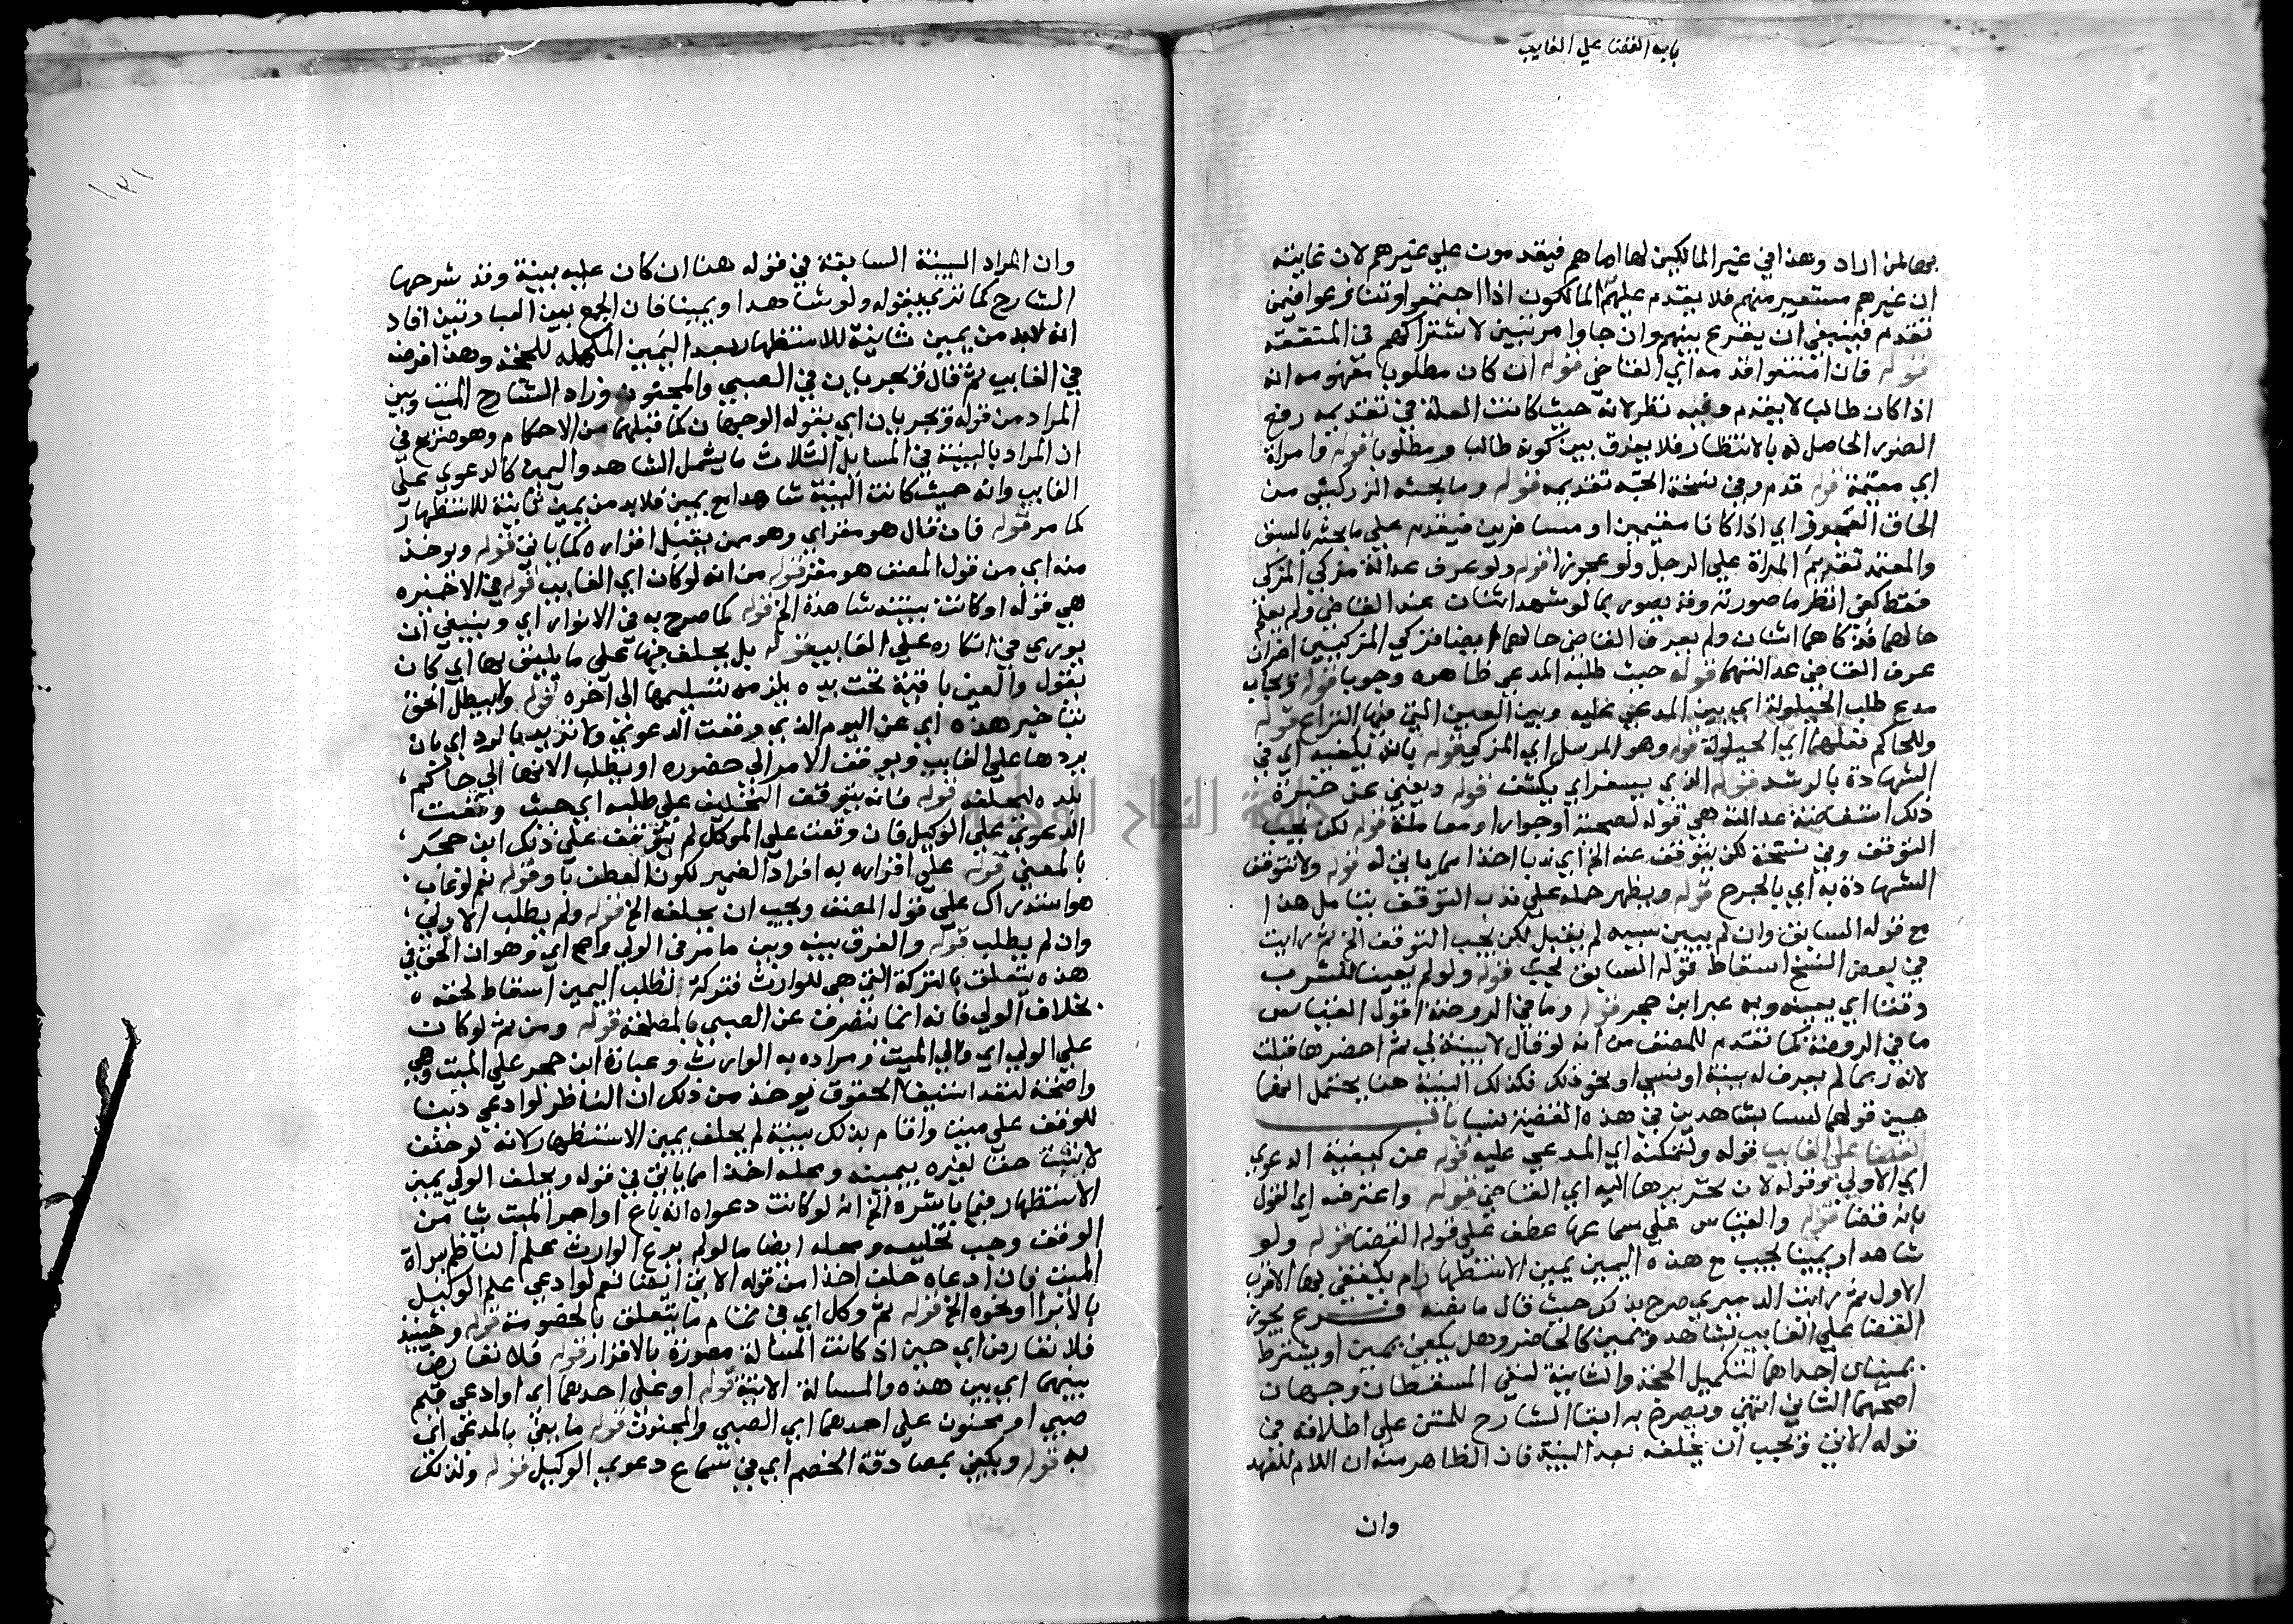 باب القضا علي الغايب
بها لمن اراد وهذا في غير المالكين لها اما هم فيقدمون علي غيرهم لان غايته
ان غيرهم مستعير منهم فلا يقدم عليهم المالكون اذا اجتمعوا وتنازعوا فيمن
تقدم فينبغي ان يقترع بينهم وان جاوا مرتبين لاشتراكهم في المنفعة
قوله فان امتنعوا قدمه اي القاضي قوله ان كان مطلوبا مفهومه انه
اذا كان طالب لا يقدم وفيه نظر لانه حيث كانت العلة في تقديمه رفع
الضرر الحاصل له بالانتظار فلا يفرق بين كونه طالب ومطلوبا قوله وامراة
اي مقيمة قوله قدم وفي نسخة اتجه تقديمه قوله وما بحثه الزركشي من
الحاق العجوز اي اذا كانا مقيمين او مسافرين فيقدم علي ما بحثه بالسنن
والمعتمد تقديم المراة علي الرجل ولو عجوزا قوله ولو عرف عدالة مزكي المزكي
فقط كفي انظر ما صورته وقد يصور بما لو شهد اثنان عند القاضي ولم يعلم
حالهما فزكاهما اثنان ولم يعرف القاضي حالهما ايضا فزكي المزكيين اخران
عرف القاضي عدالتهما قوله حيث طلبه المدعي ظاهره وجوبا قوله ويجاب
مدع طلب الحيلولة اي بين المدعي عليه وبين العين التي فيها النزاع قوله
وللحاكم فعلها اي الحيلولة قوله وهو المرسل اي المزكي قوله بانه يكفيه اي في
الشهادة بالرشد قوله الذي يسفر اي يكشف قوله ويغني عن خبرة
ذلك استفاضة عدالته هي قوله لصحبة او جوار او معاملة قوله لكن يجب
التوقف وفي نسخة لكن يتوقف عنه الخ اي ندبا اخذا مما ياتي له قوله ولا تتوقف
الشهادة به اي بالجرح قوله ويظهر حمله علي ندب التوقف يتامل هذا
مع قوله السابق وان لم يبين سببه لم يقبل لكن يجب التوقف الخ ثم رايت
في بعض النسخ اسقاط قوله السابق يجب قوله ولو لم يعينا للشرب
وقتا اي يعينه وبه عبر ابن حجر قوله وما في الروضة اقول القياس
ما في الروضة كما تقدم للمصنف من انه لو قال لا بينة لي ثم احضرها قبلت
لانه ربما لم يعرف له بينة او نسي او نحو ذلك فكذلك البينة هنا يحتمل انهما
حين قولهما لسنا بشاهدين في هذه القضية نسيا باب
القضا علي الغايب قوله ولتمكنه اي المدعي عليه قوله عن كيفية الدعوي
اي الاولي وقوله لان تحريرها اليه اي القاضي قوله واعترضه اي القول
بانه قضا قوله والقياس علي سماعها عطف علي قوله القضا قوله ولو
شاهدا ويمينا يجب مع هذه اليمين يمين الاستظهار ام يكتفي بها الاقرب
الاول ثم رايت الدميري صرح بذلك حيث قال ما نصه فــرع يجوز
القضا علي الغايب بشاهد ويمين كالحاضر وهل يكفي يمين او يشترط
يمينان احداهما لتكميل الحجة والثانية لنفي المسقط ان وجهان
اصحهما الثاني انتهي ويصرح به ابقا الشارح للمتن علي اطلاقه في
قوله الاتي ويجب ان يحلفه بعد البينة فان الظاهر منه ان اللام للعهد
وان
١٢١
وان المراد البينة السابقة في قوله هنا ان كان عليه بينة وقد شرحها
الشارح كما تري بقوله ولو شاهدا ويمينا فان الجمع بين العبارتين افاد
انه لابد من يمين ثانية للاستظهار بعد اليمين المكمله للحجة وهذا فرضه
في الغايب ثم قال ويجريان في الصبي والمجنون وزاد الشارح الميت وبين
المراد من قوله ويجريان اي بقوله الوجهان كما قبلهما من الاحكام وهو صريح في
ان المراد بالبينة في المسايل الثلاث ما يشمل الشاهد واليمين كالدعوي علي
الغايب وانه حيث كانت البينة شاهدا مع يمين فلابد من يمين ثانية للاستظهار
كما مر قوله فان قال هو مقر اي وهو ممن يقبل اقراره كما ياتي قوله ويوخذ
منه اي من قول المصنف هو مقر قوله من انه لو كان اي الغايب قوله في الاخيره
هي قوله او كانت بينته شاهدة الخ قوله كما صرح به في الانوار اي وينبغي ان
يوري في انكاره علي الغايب قوله بل يحلف فيها علي ما يليق بها اي كان
يقول والعين باقية تحت يده يلزمه تسليمها الي آخره قوله ولا يبطل الحق
بتاخير هذه اي عن اليوم الذي وقعت الدعوي ولا ترتد بالرد اي بان
يردها علي الغايب ويوقف الامر الي حضوره او يطلب الانها الي حاكم
بلده ليحلفه قوله فانه يتوقف التحليف علي طلبه اي حيث وقعت
الدعوي علي الوكيل فان وقعت علي الموكل لم يتوقف علي ذلك ابن حجر
بالمعني قوله علي اقراره به افراد الضمير لكون العطف باو قوله نعم لو غاب
هو استدراك علي قول المصنف ويجب ان يحلفه الخ قوله ولم يطلب الاولي
وان لم يطلب قوله والفرق بينه وبين ما مر في الولي واضح اي وهو ان الحق في
هذه يتعلق بالتركة التي هي للوارث فتركه لطلب اليمين اسقاط لحقه
بخلاف الولي فانه انما يتصرف عن الصبي بالمصلحة قوله ومن ثم لو كان
علي الولي اي ولي الميت ومراده به الوارث وعبارة ابن حجر علي الميت وهي
واضحة لتعذر استيفا الحقوق يوخذ من ذلك ان الناظر لو ادعي دينا
للوقف علي ميت واقام بذلك بينة لم يحلف يمين الاستظهار لانه لو حلف
لا يثبت حقا لغيره بيمينه ومحله اخذا مما ياتي في قوله ويحلف الولي يمين
الاستظهار فيما باشره الخ انه لو كانت دعواه انه باع او اجر الميت شيا من
الوقف وجب تحليفه ومحله ايضا ما لو لم يدع الوارث علم الناظر براة
الميت فان ادعاه حلف اخذا من قوله الاتي ايضا نعم لو ادعي علم الوكيل
بالابرا او نحوه الخ قوله ثم وكل اي في تمام ما يتعلق بالخصومة قوله وحينيذ
فلا تعارض اي حين اذ كانت المسالة مصورة بالاقرار قوله فلا تعارض
بينهما اي بين هذه والمسالة الاتية قوله او علي احدهما اي او ادعي قيم
صبي او مجنون علي احدهما اي الصبي والمجنون قوله ما بقي بالمدعي اي
به قوله ويكفي بمصادقة الخصم اي في سماع دعوي الوكيل قوله ولذلك